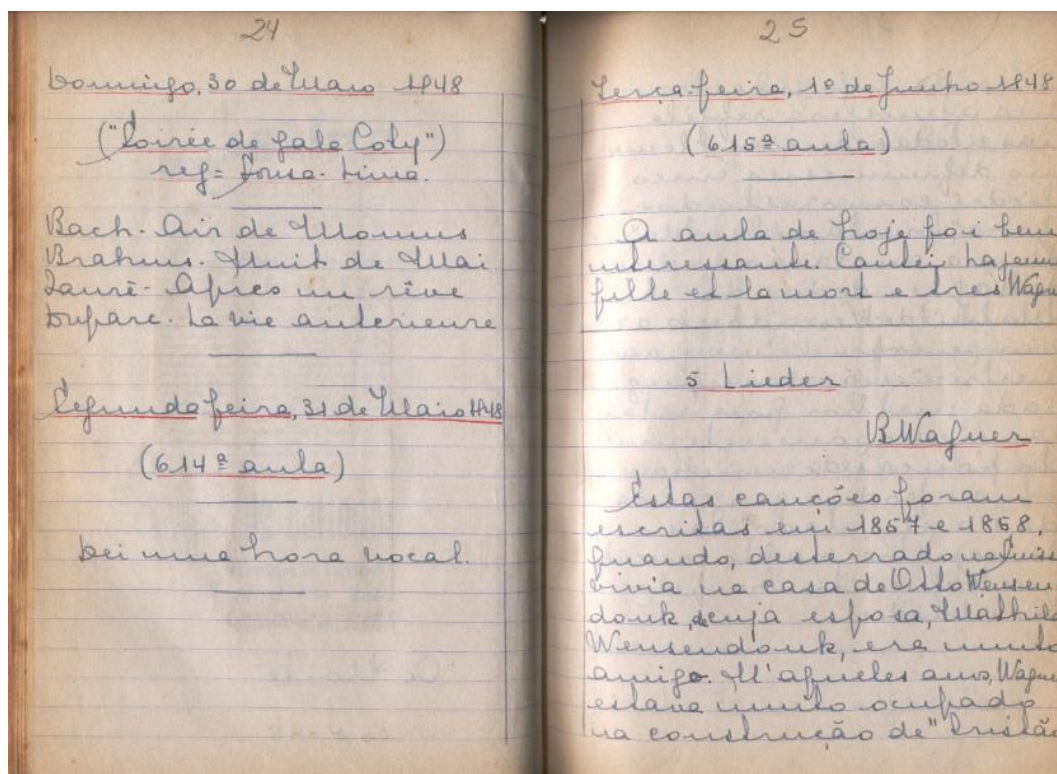 24
Domingo, 30 de Maio 1948
("Soirée de gala Coty")
reg= Sousa-Lima.
Bach. Air de Momus
Brahms. Nuit de Mai
Fauré- Après un rêve
Duparc. La vie anterieure
Segunda feira, 31 de Maio 1948
(614ª aula)
Dei uma hora vocal.
25
Terça-feira, 1º de Junho 1948
(615ª aula)
A aula de hoje foi bem
interessante. Cantei La jeune
fille et la mort e tres Wagne
5 Lieder
R Wagner
Estas canções foram
escritas em 1857 e 1858,
quando, desterrado na Suissa
vivia na casa de Otto Wensen
donk, cuja esposa, Mathil
Wensendonk, era muito
amiga. N'aqueles anos, Wagne
estava muito ocupado
na construção de "Tristão